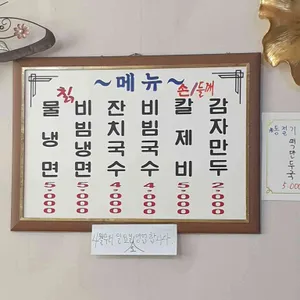 ~메뉴~
칡 물냉면 5,000
비빔냉면 5,000
잔치국수 4,000
비빔국수 4,000
손/들깨 칼제비 5,000
감자만두 2,000
5,000